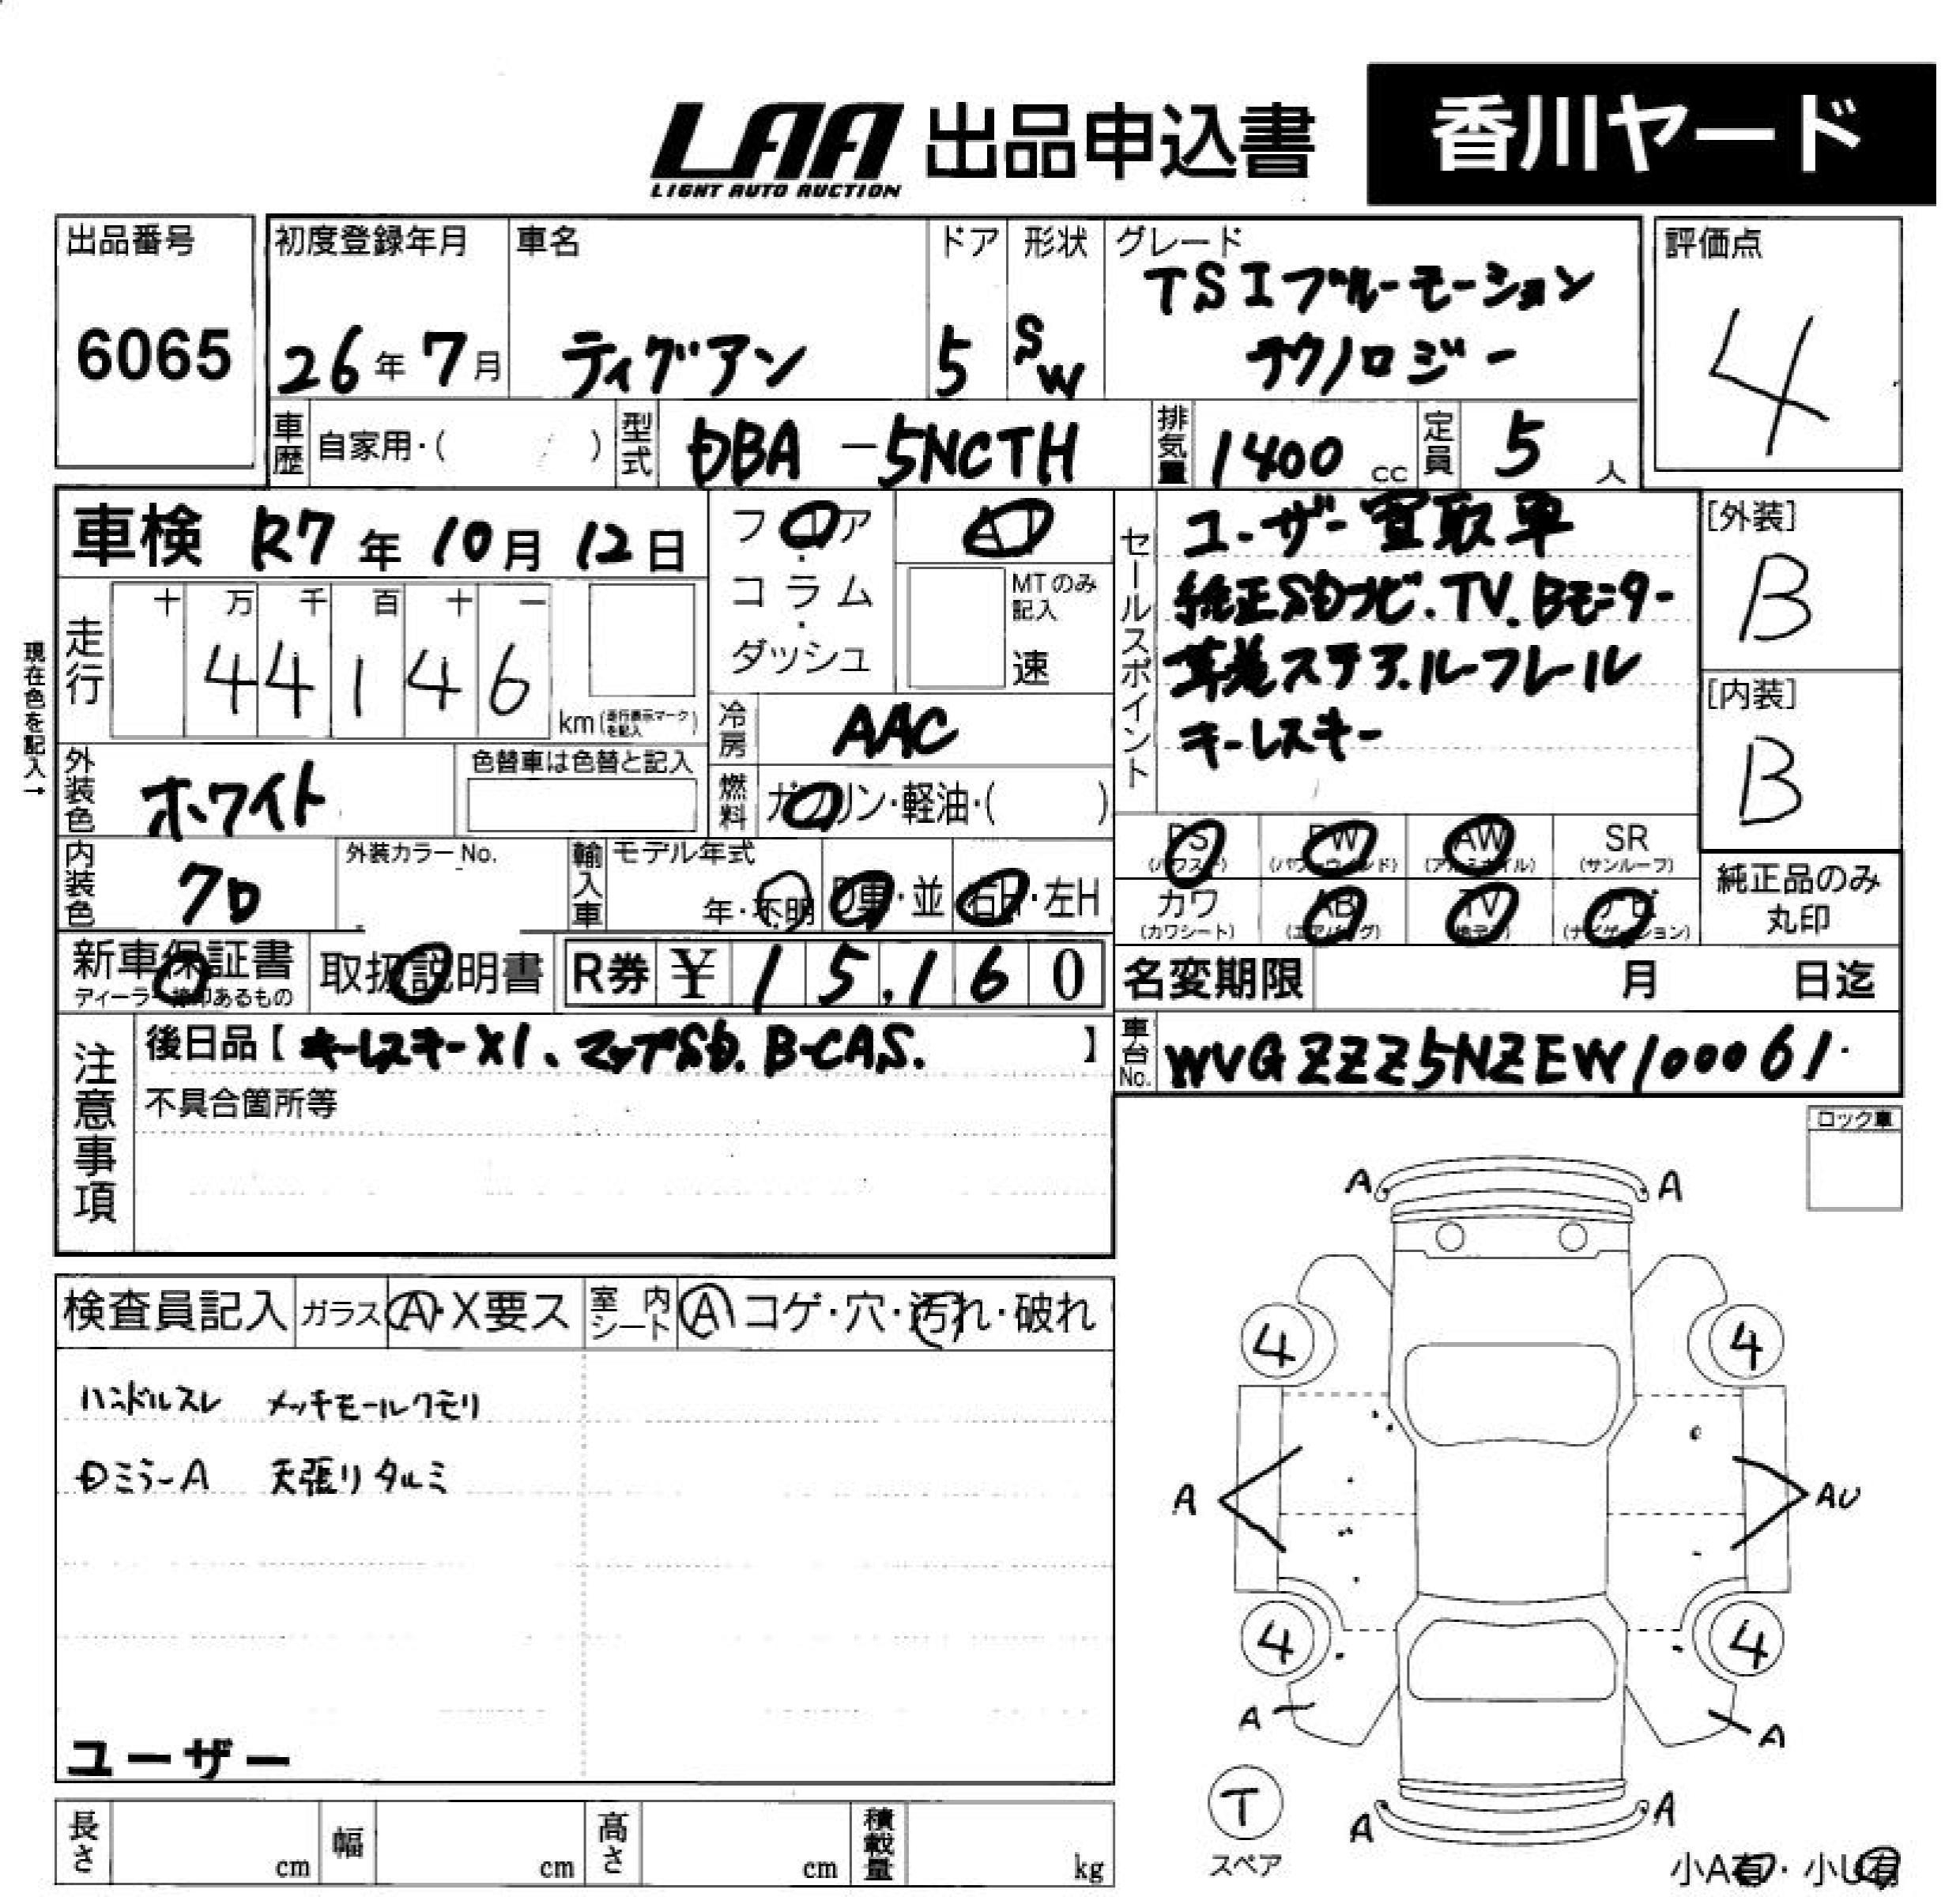 LAA 出品申込書 香川ヤード
LIGHT AUTO AUCTION
出品番号
6065
初度登録年月
26年7月
車名
ティグアン
ドア
5
形状
SW
グレード
TSIブルーモーション
テクノロジー
評価点
4
車歴 自家用・( )
型式 DBA-5NCTH
排気量 1400 cc
定員 5 人
車検 R7年10月12日
フロア
コラム
ダッシュ
AT
MTのみ
記入
速
セールスポイント
ユーザー買取車
純正SDナビ.TV.Bモニター
革巻ステア.ルーフレール
キーレスキー
[外装]
B
[内装]
B
現在色を記入→
走行
十 万 千 百 十 一
44146
km(走行表示マークを記入)
冷房 AAC
外装色 ホワイト
色替車は色替と記入
燃料 ガソリン・軽油・( )
内装色 クロ
外装カラーNo.
輸入車
モデル年式
年・不明
D車・並
右H・左H
PS
(パワステ)
PW
(パワーウインド)
AW
(アルミホイル)
SR
(サンルーフ)
カワ
(カワシート)
AB
(エアバッグ)
TV
ナビ
(ナビゲーション)
純正品のみ
丸印
新車保証書
ディーラー捺印あるもの
取扱説明書
R券 ¥ 15,160
名変期限 月 日迄
注意事項
後日品【キーレスキーX1、マップSD.B-CAS.】
不具合箇所等
車台No. WVGZZZ5NZEW100061
ロック車
検査員記入
ガラス A・X要ス
室内シート A コゲ・穴・汚れ・破れ
ハンドルスレ メッキモールクモリ
Dミラ-A 天張リタルミ
ユーザー
A A
4 4
A AU
4 4
A A
T
スペア
A A
小A有・小U有
長さ cm
幅 cm
高さ cm
積載量 kg